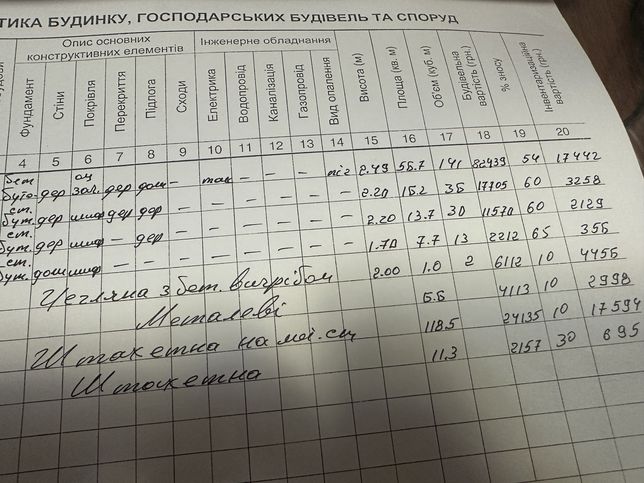 ТИКА БУДИНКУ, ГОСПОДАРСЬКИХ БУДІВЕЛЬ ТА СПОРУД
Опис основних конструктивних елементів
Інженерне обладнання
Фундамент Стіни Покрівля Перекриття Підлога Сходи Електрика Водопровід Каналізація Газопровід Вид опалення Висота (м) Площа (кв. м) Об'єм (куб. м) Будівельна вартість (грн.) % зносу Інвентаризаційна вартість (грн.)
4 5 6 7 8 9 10 11 12 13 14 15 16 17 18 19 20
бет. дер дер дощ – так – – – піч 2.49 55.7 141 82439 54 17442
бут. ст. дер шиф дер дер – – – – – – 2.20 15.2 35 17705 60 3258
бут. ст. дер шиф – дер – – – – – – 2.20 13.7 30 11570 60 2129
бут. дощ шиф – – – – – – – – 1.70 7.7 13 2212 65 355
Цегляна з бет. вигрібом 2.00 1.0 2 6112 10 4456
Металеві 5.5 4113 10 2998
Штакетна на мет. ст 118.5 24135 10 17594
Штакетна 11.3 2157 30 695